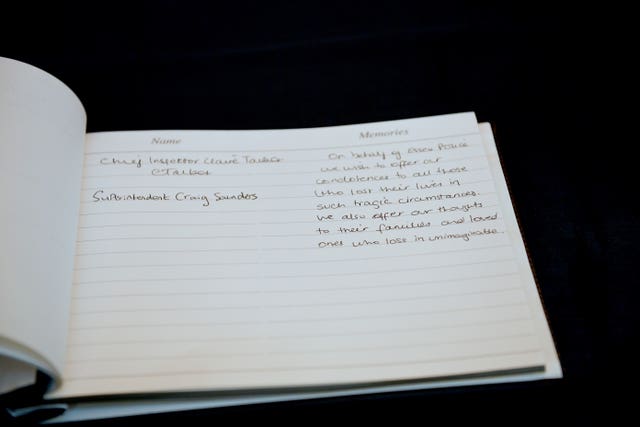 Name
Memories
Chief Inspector Claire Talbot
CTalbot
Superintendent Craig Saunders
On behalf of Essex Police
we wish to offer our
condolences to all those
who lost their lives in
such tragic circumstances.
We also offer our thoughts
to their families and loved
ones who loss in unimaginable.